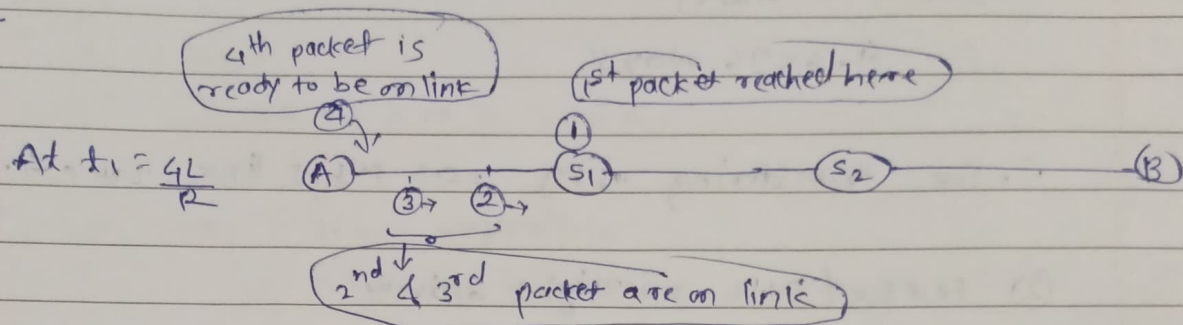 4th packet is
ready to be on link
1st packet reached here
4
1
At t1 = 4L/R
A
S1
S2
B
3
2
2nd & 3rd packet are on link